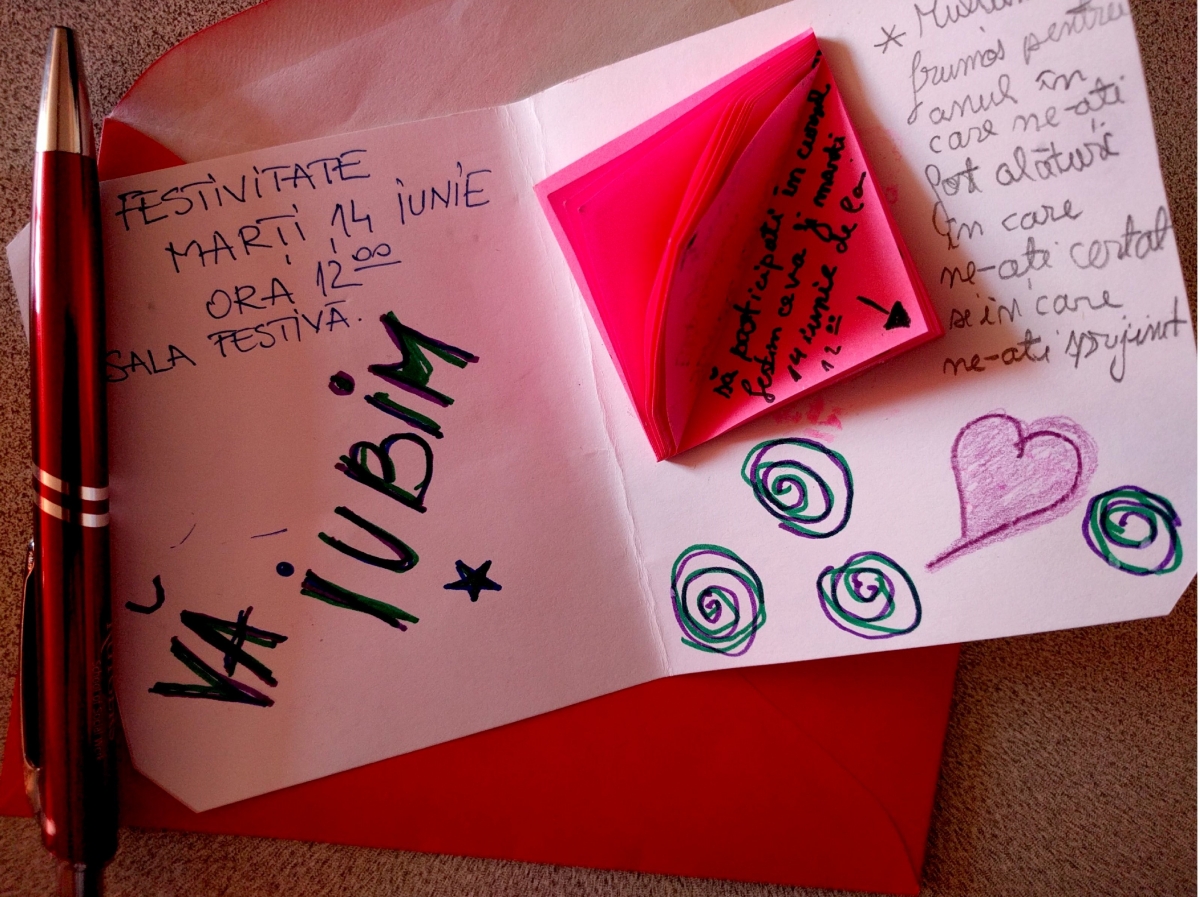 FESTIVITATE
MARȚI 14 IUNIE
ORA 12⁰⁰
SALA FESTIVĂ.
VĂ IUBIM
să participați în cursul
festim ceva și marți
14 iunie de la
12⁰⁰
*
frumos pentru
anul în
care ne-ați
fost alături
în care
ne-ați certat
și în care
ne-ați sprijinit